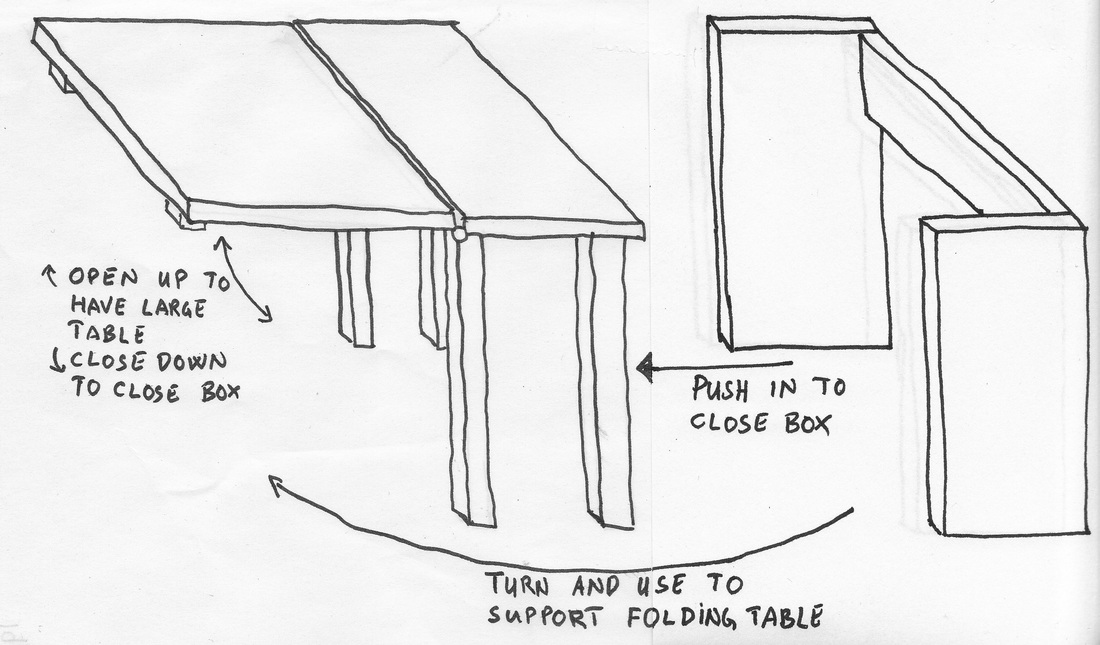 ↑ OPEN UP TO
HAVE LARGE
TABLE
↓ CLOSE DOWN
TO CLOSE BOX
PUSH IN TO
CLOSE BOX
TURN AND USE TO
SUPPORT FOLDING TABLE